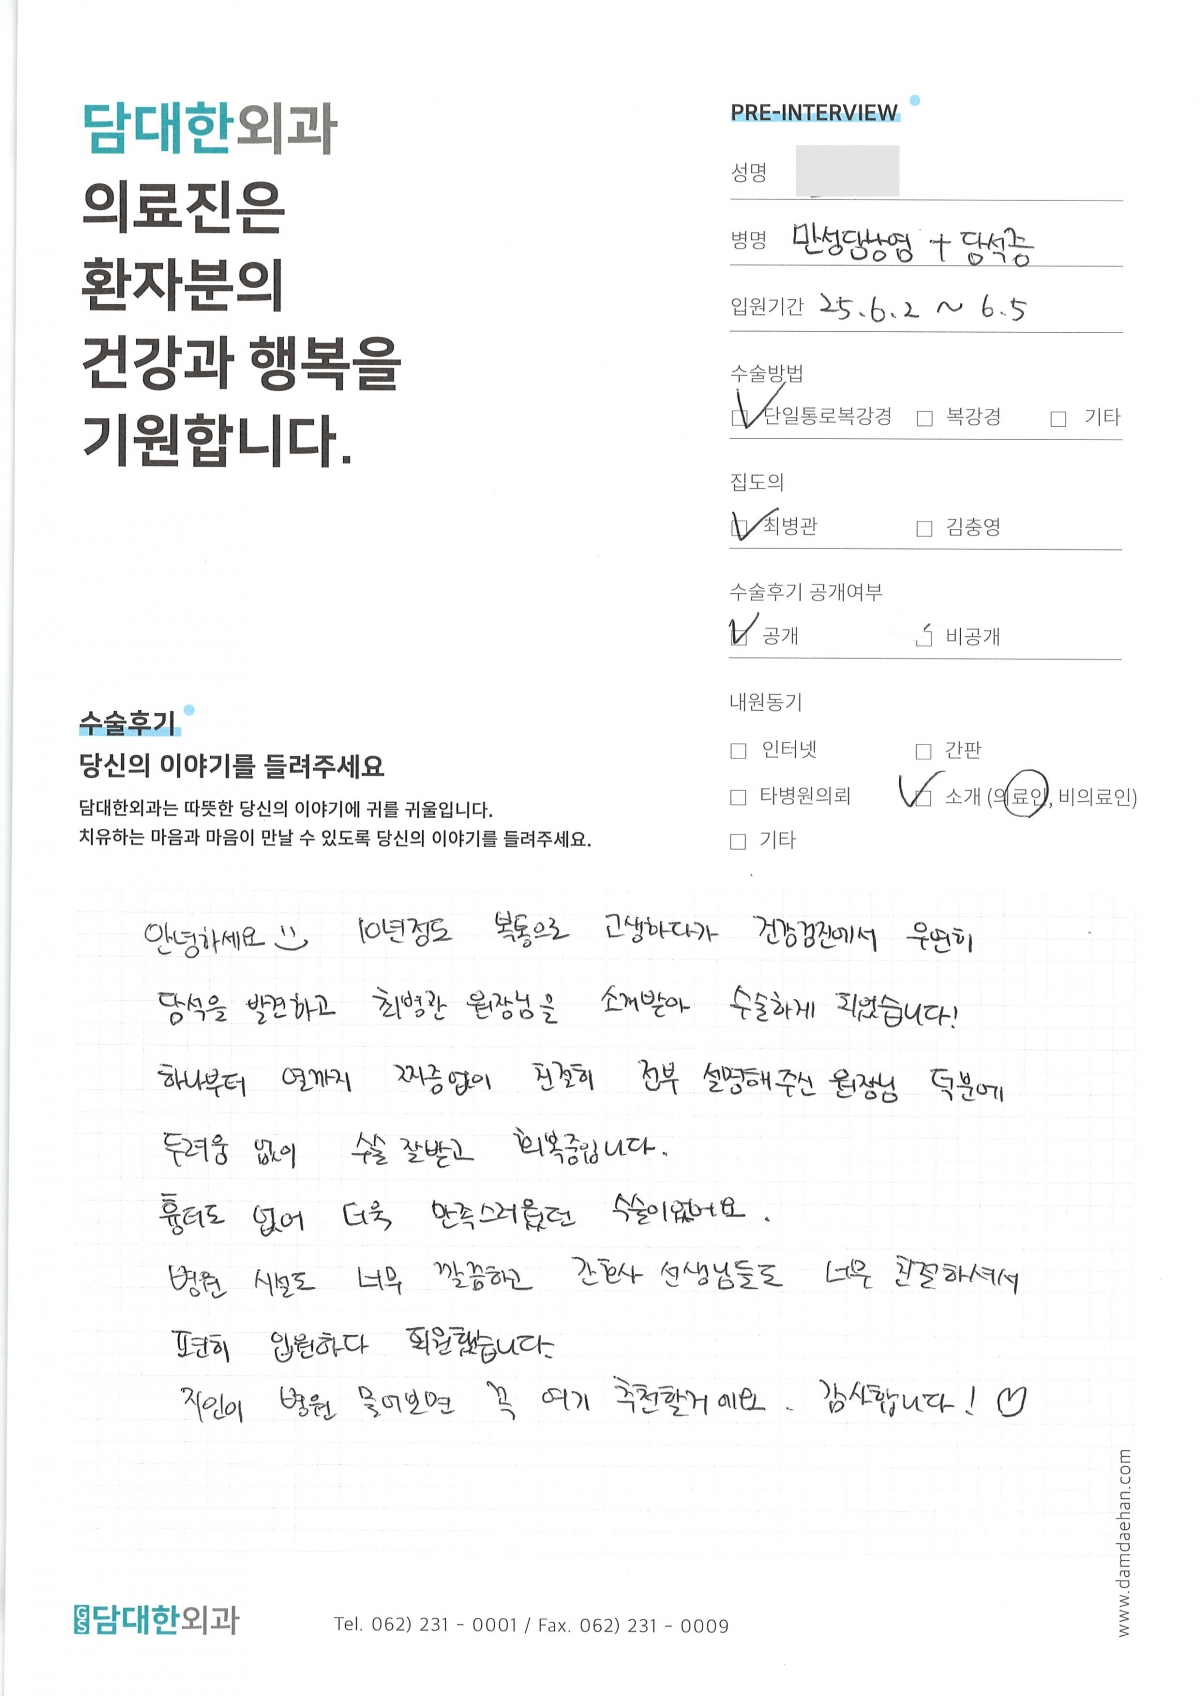 담대한외과
의료진은
환자분의
건강과 행복을
기원합니다.
PRE-INTERVIEW
성명
병명 만성담낭염 + 담석증
입원기간 25.6.2 ~ 6.5
수술방법
단일통로복강경 복강경 기타
집도의
최병관 김충영
수술후기 공개여부
공개 비공개
내원동기
인터넷 간판
타병원의뢰 소개 (의료인, 비의료인)
기타
수술후기
당신의 이야기를 들려주세요
담대한외과는 따뜻한 당신의 이야기에 귀를 귀울입니다.
치유하는 마음과 마음이 만날 수 있도록 당신의 이야기를 들려주세요.
안녕하세요 :) 10년정도 복통으로 고생하다가 건강검진에서 우연히
담석을 발견하고 최병관 원장님을 소개받아 수술하게 되었습니다!
하나부터 열까지 짜증없이 친절히 전부 설명해주신 원장님 덕분에
두려움 없이 수술 잘받고 회복중입니다.
흉터도 없어 더욱 만족스러웠던 수술이었어요.
병원 시설도 너무 깔끔하고 간호사 선생님들도 너무 친절하셔서
편안히 입원하다 퇴원했습니다.
지인이 병원 물어보면 꼭 여기 추천할거에요. 감사합니다! ♡
www.damdaehan.com
GS 담대한외과
Tel. 062) 231 - 0001 / Fax. 062) 231 - 0009